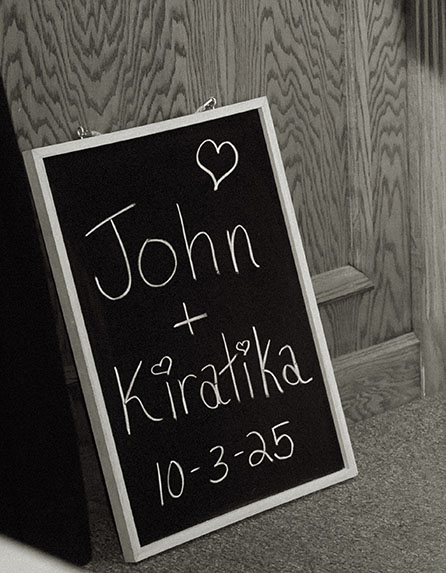 John
+
Kiratika
10-3-25